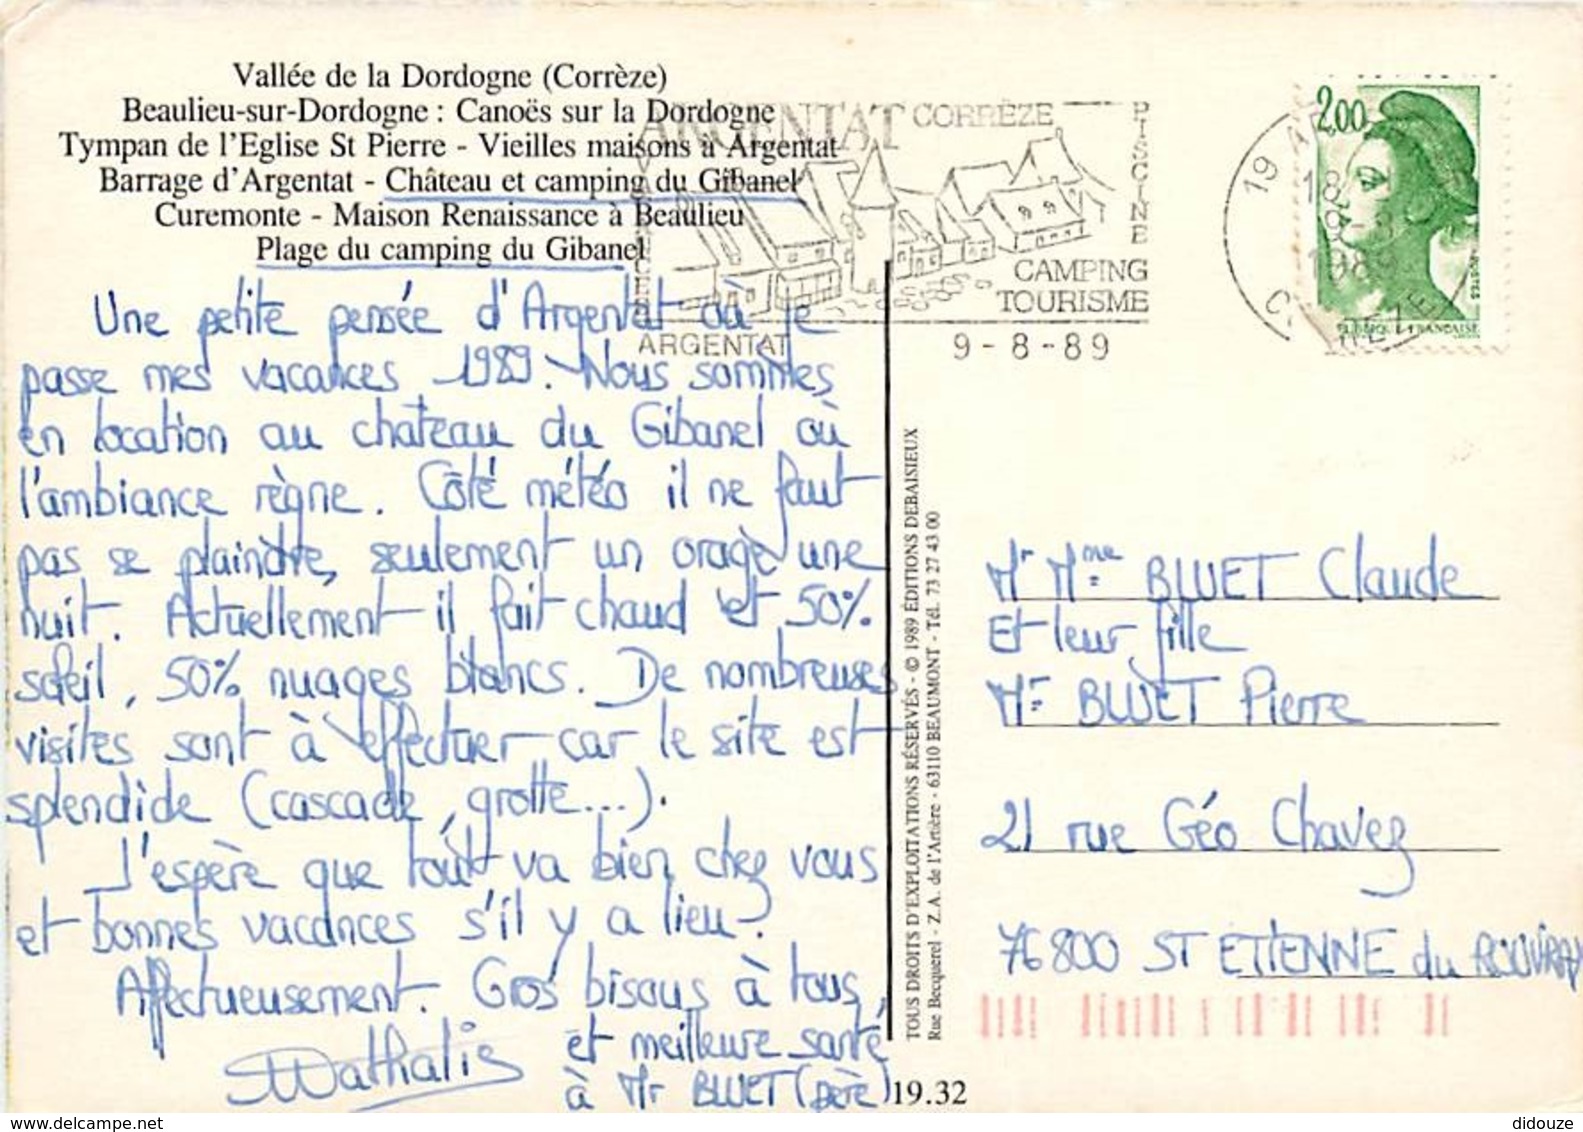 Vallée de la Dordogne (Corrèze)
Beaulieu-sur-Dordogne : Canoës sur la Dordogne
Tympan de l'Eglise St Pierre - Vieilles maisons à Argentat
Barrage d'Argentat - Château et camping du Gibanel
Curemonte - Maison Renaissance à Beaulieu
Plage du camping du Gibanel
ARGENTAT CORRÈZE
PISCINE
CAMPING
TOURISME
ARGENTAT
9-8-89
19
18
9-8
1989
2.00
Une petite pensée d'Argentat où je
passe mes vacances 1989. Nous sommes
en location au château du Gibanel où
l'ambiance règne. Côté météo il ne faut
pas se plaindre, seulement un orage une
nuit. Actuellement il fait chaud et 50%
soleil, 50% nuages blancs. De nombreuses
visites sont à effectuer car le site est
splendide (cascade, grotte...).
J'espère que tout va bien chez vous
et bonnes vacances s'il y a lieu?
Affectueusement. Gros bisous à tous,
et meilleure santé
à Mr BLUET (père)
Nathalie
TOUS DROITS D'EXPLOITATIONS RÉSERVÉS - © 1989 ÉDITIONS DEBAISIEUX
Rue Becquerel - Z.A. de l'Artière - 63110 BEAUMONT - Tél. 73 27 43 00
Mr Mme BLUET Claude
Et leur fille
Mr BLUET Pierre
21 rue Géo Chavez
76800 ST ETIENNE du ROUVRAY
19.32
didouze
delcampe.net